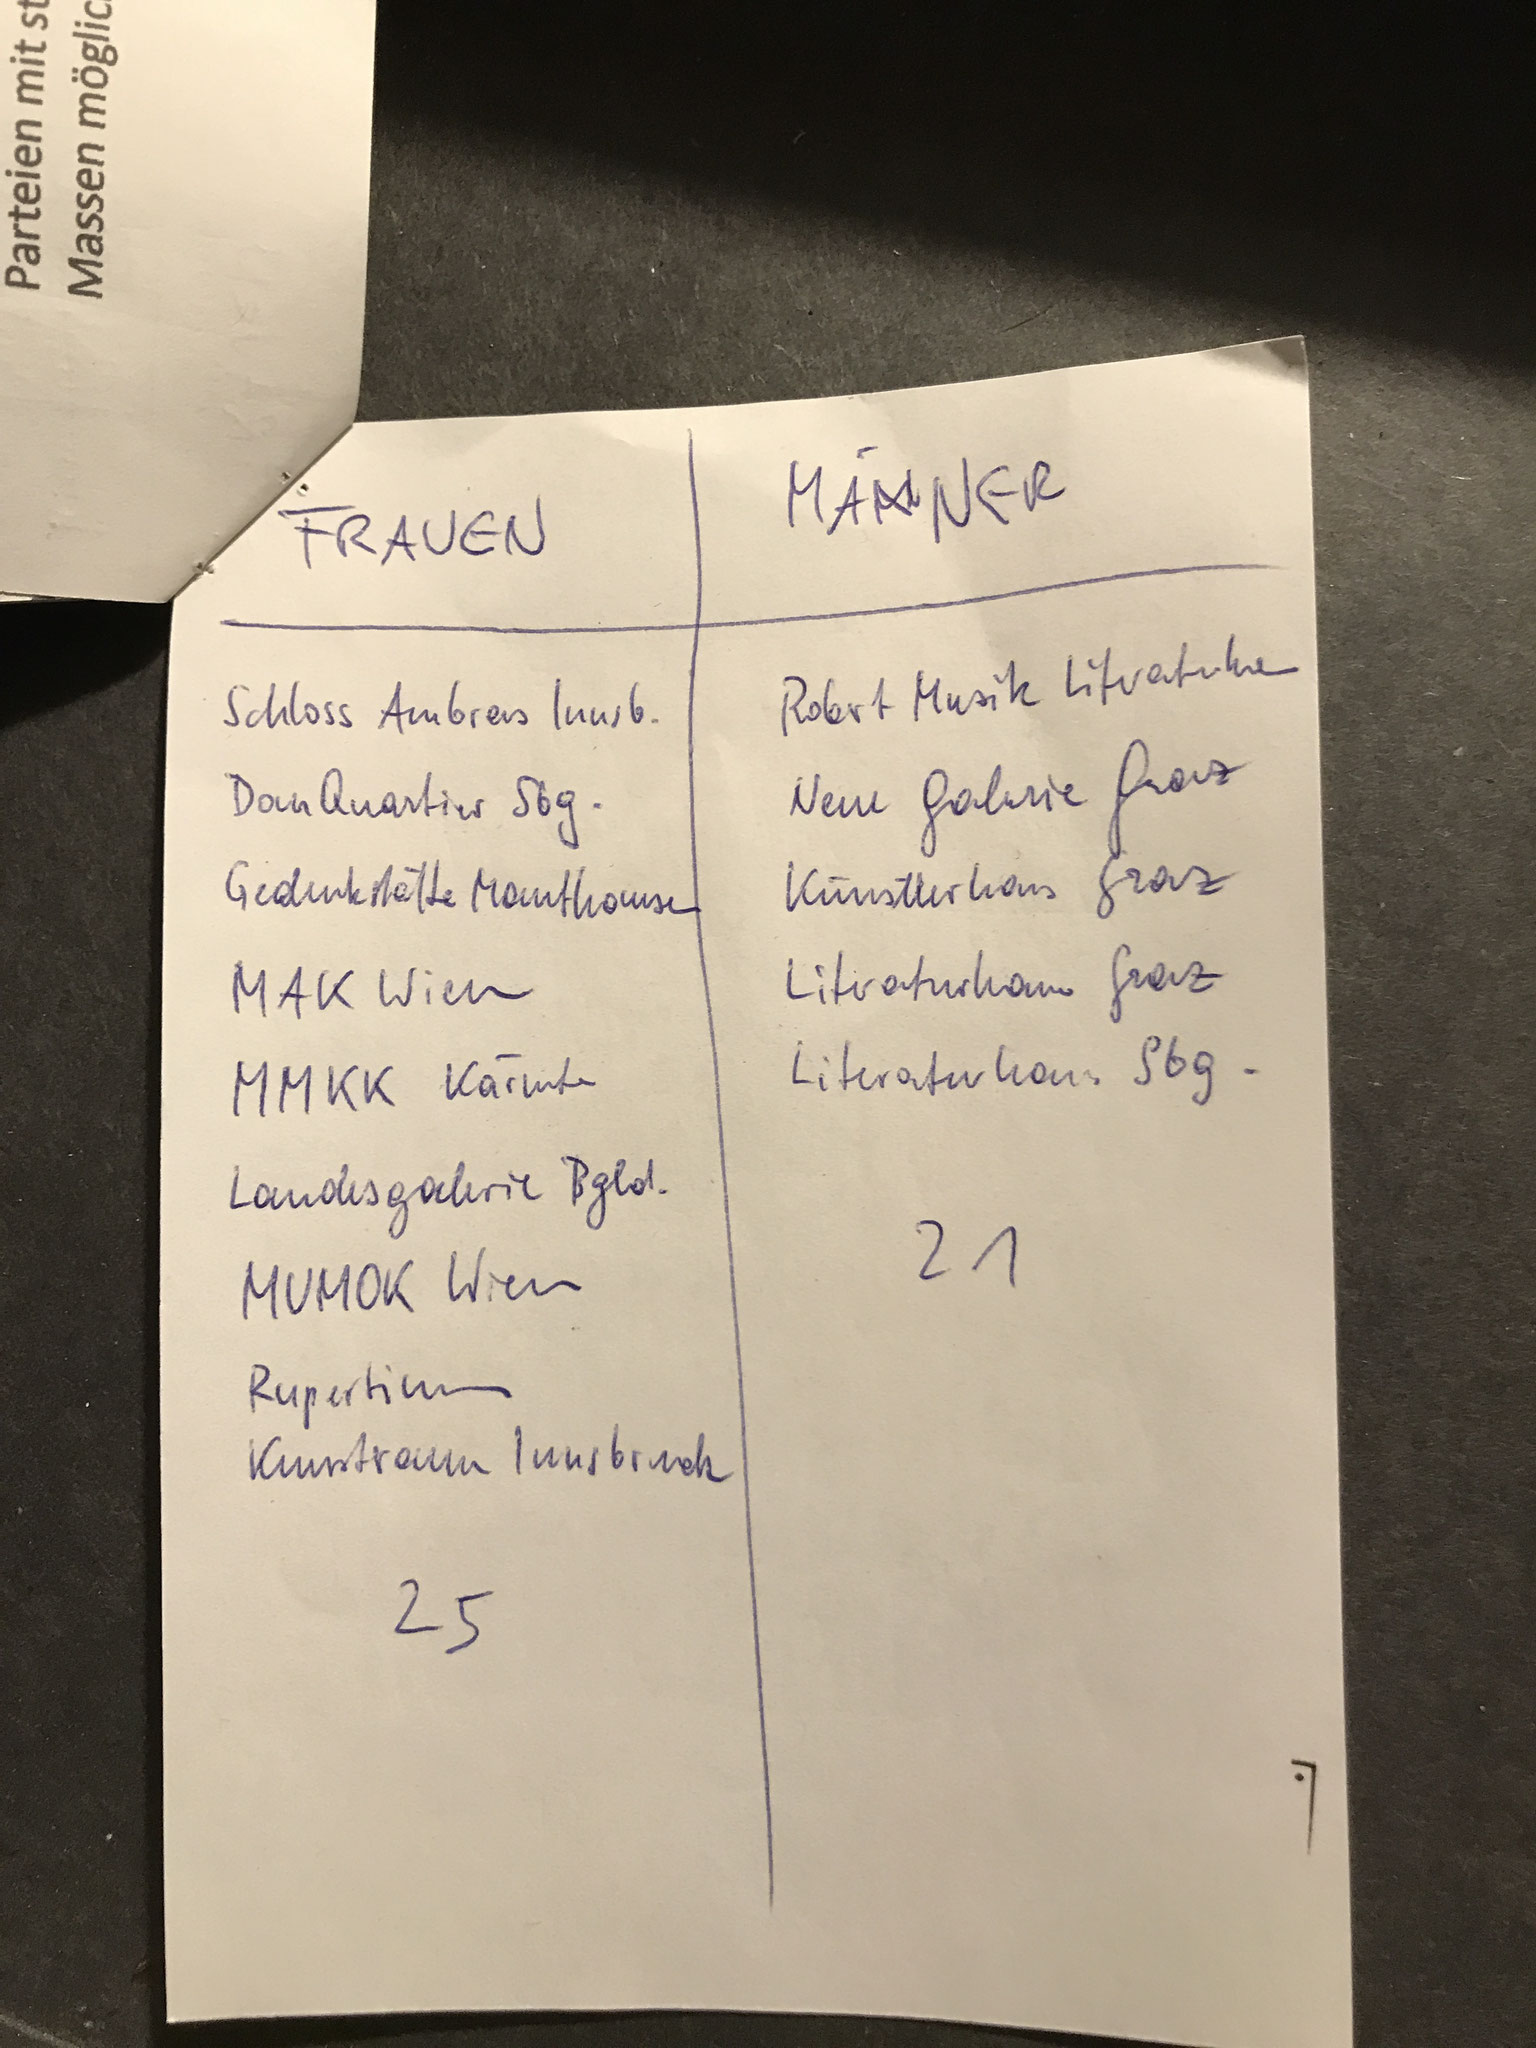 Parteien mit st
Massen möglic
FRAUEN
Schloss Ambras Innsb.
DomQuartier Sbg.
Gedenkstätte Mauthausen
MAK Wien
MMKK Kärnten
Landesgalerie Bgld.
MUMOK Wien
Rupertinum
Kunstraum Innsbruck
25
MÄNNER
Robert Musik Literaturhaus
Neue Galerie Graz
Künstlerhaus Graz
Literaturhaus Graz
Literaturhaus Sbg.
21